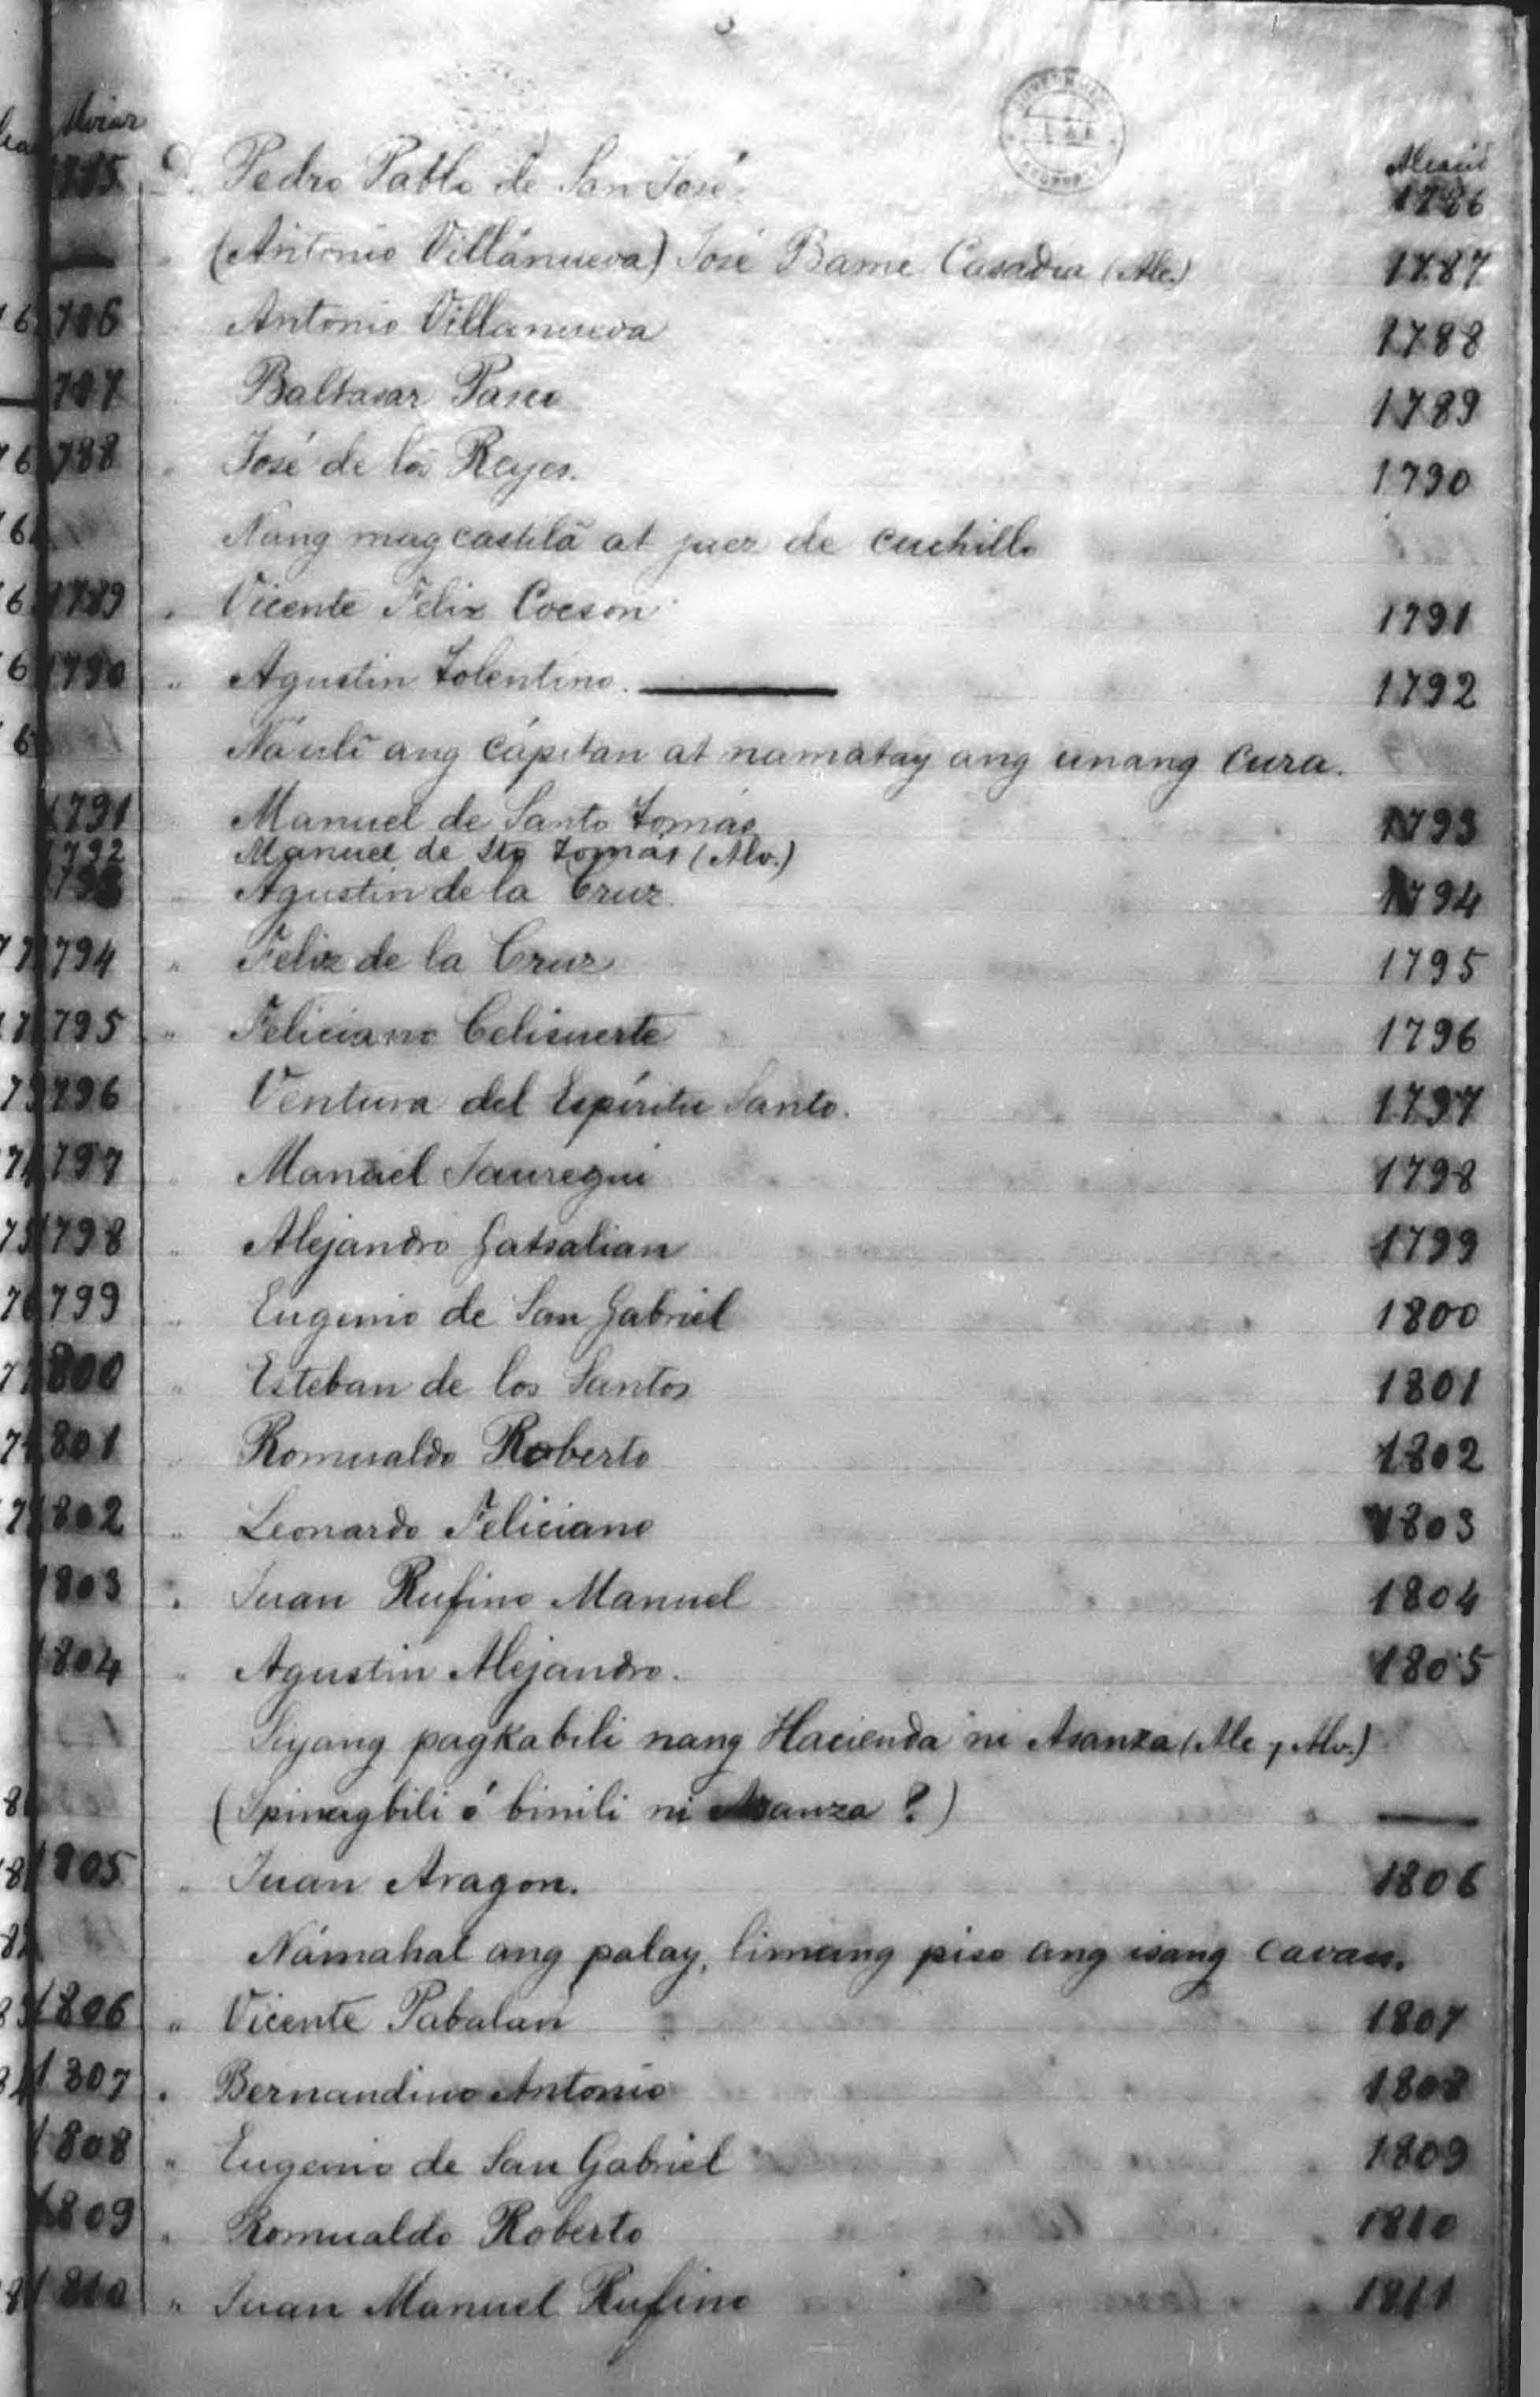 1785 D. Pedro Pablo de San José 1786
— " (Antonio Villánueva) José Bame Casadra (Ale.) 1787
1786 Antonio Villanueva 1788
1787 Baltasar Pasco 1789
1788 " José de los Reyes. 1790
Nang magcastila at juez de cuchillo
1789 " Vicente Felix Cocson 1791
1790 " Agustin Tolentino. — 1792
Náuli ang cápitan at namatay ang unang Cura.
1791 Manuel de Santo Tomás 1793
1792 Manuel de Sto Tomás (Alv.)
1793 " Agustin de la Cruz 1794
1794 " Feliz de la Cruz 1795
1795 " Feliciano Celisuerte 1796
1796 Ventura del Espíritu Santo. 1797
1797 " Manuel Jauregui 1798
1798 " Alejandro Gatsalian 1799
1799 " Eugenio de San Gabriel 1800
1800 " Esteban de los Santos 1801
1801 " Romualdo Roberto 1802
1802 " Leonardo Feliciano 1803
1803 " Juan Rufino Manuel 1804
1804 " Agustin Alejandro. 1805
Siyang pagkabili nang Hacienda ni Asanza (Ale y Alv.)
(Ipinagbili ó binili ni Asanza?) —
1805 " Juan Aragon. 1806
Námahal ang palay, limang piso ang isang cavan.
1806 " Vicente Pabalan 1807
1807 " Bernandino Antonio 1808
1808 " Eugenio de San Gabriel 1809
1809 " Romualdo Roberto 1810
1810 " Juan Manuel Rufino 1811